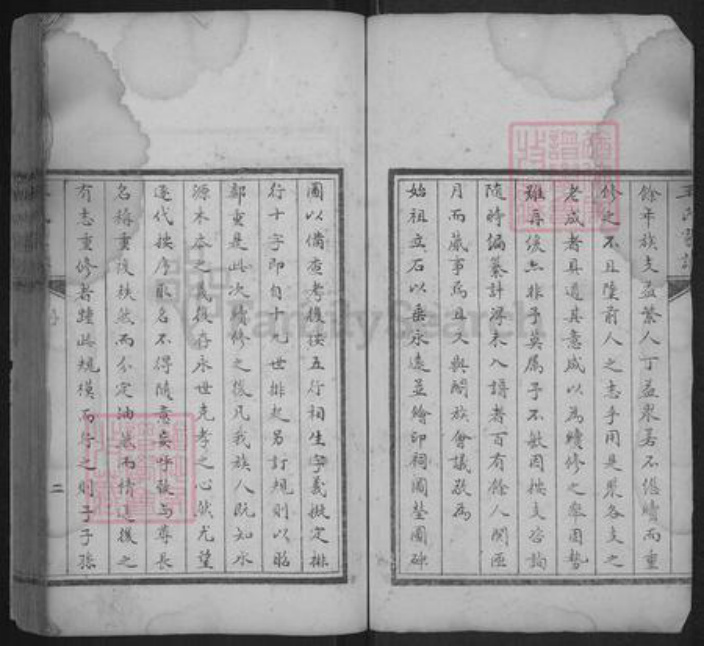 餘年族支益繁人丁益眾若不繼續而重
修之不且墮前人之志乎用是眾各支之
老成者具道其意咸以為續修之舉固勢
難再緩亦非予莫屬予不敏因按支咨詢
隨時編纂計得未入譜者百有餘人閱匝
月而蕆事焉且又與閤族會議敬為
始祖立石以垂永遠並繪印祠圖塋圖碑
圖以備查考後按五行相生字義擬定排
行十字即自十九世排起另訂規則以昭
鄭重是此次續修之後凡我族人既知水
源木本之義後存永世克孝之心然尤望
逐代按序取名不得隨意妄呼致与尊長
名稱重復秩然而分定油然而情達後之
有志重修者踵此規模而行之則子子孫
二
FamilySearch